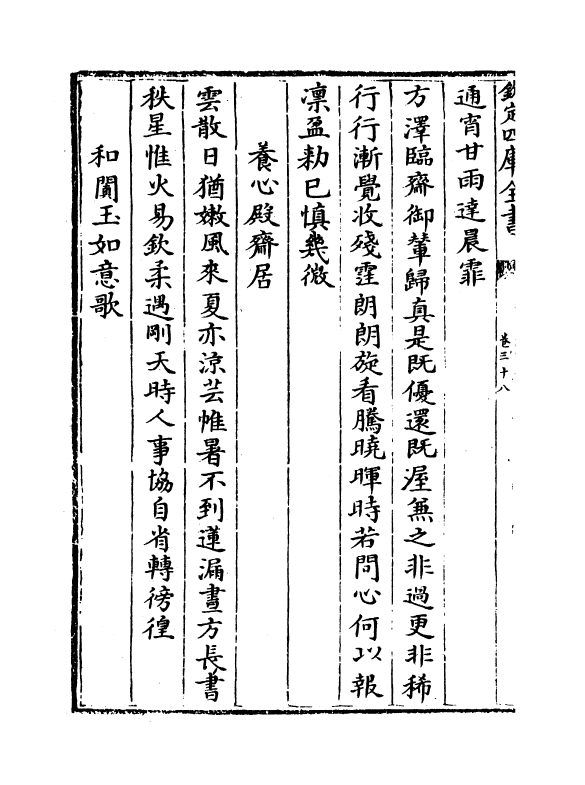 欽定四庫全書
卷三十八
通宵甘雨達晨霏
方澤臨齋御輦歸真是既優還既渥無之非過更非稀
行行漸覺收殘霔朗朗旋看騰曉暉時若問心何以報
凛盈勑已慎幾微
養心殿齋居
雲散日猶嫩風來夏亦涼芸帷暑不到蓮漏晝方長書
秩星惟火易欽柔遇剛天時人事協自省轉徬徨
和闐玉如意歌